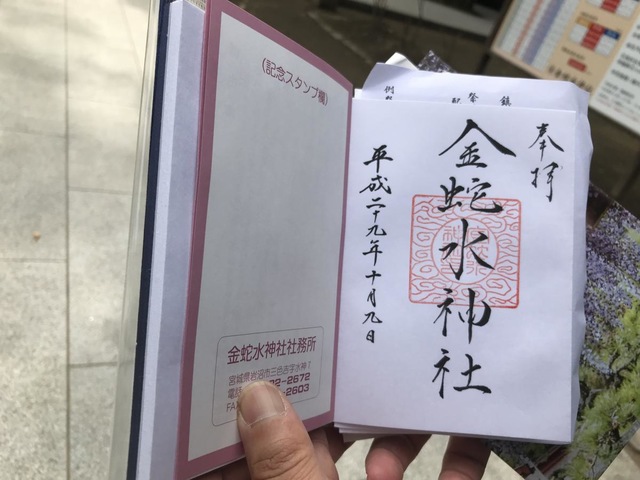 (記念スタンプ欄)
金蛇水神社社務所
宮城県岩沼市三色吉字水神7
電話
22-2672
FAX
-2603
奉拝
金蛇水神社
平成二十九年十月九日
例
鎮